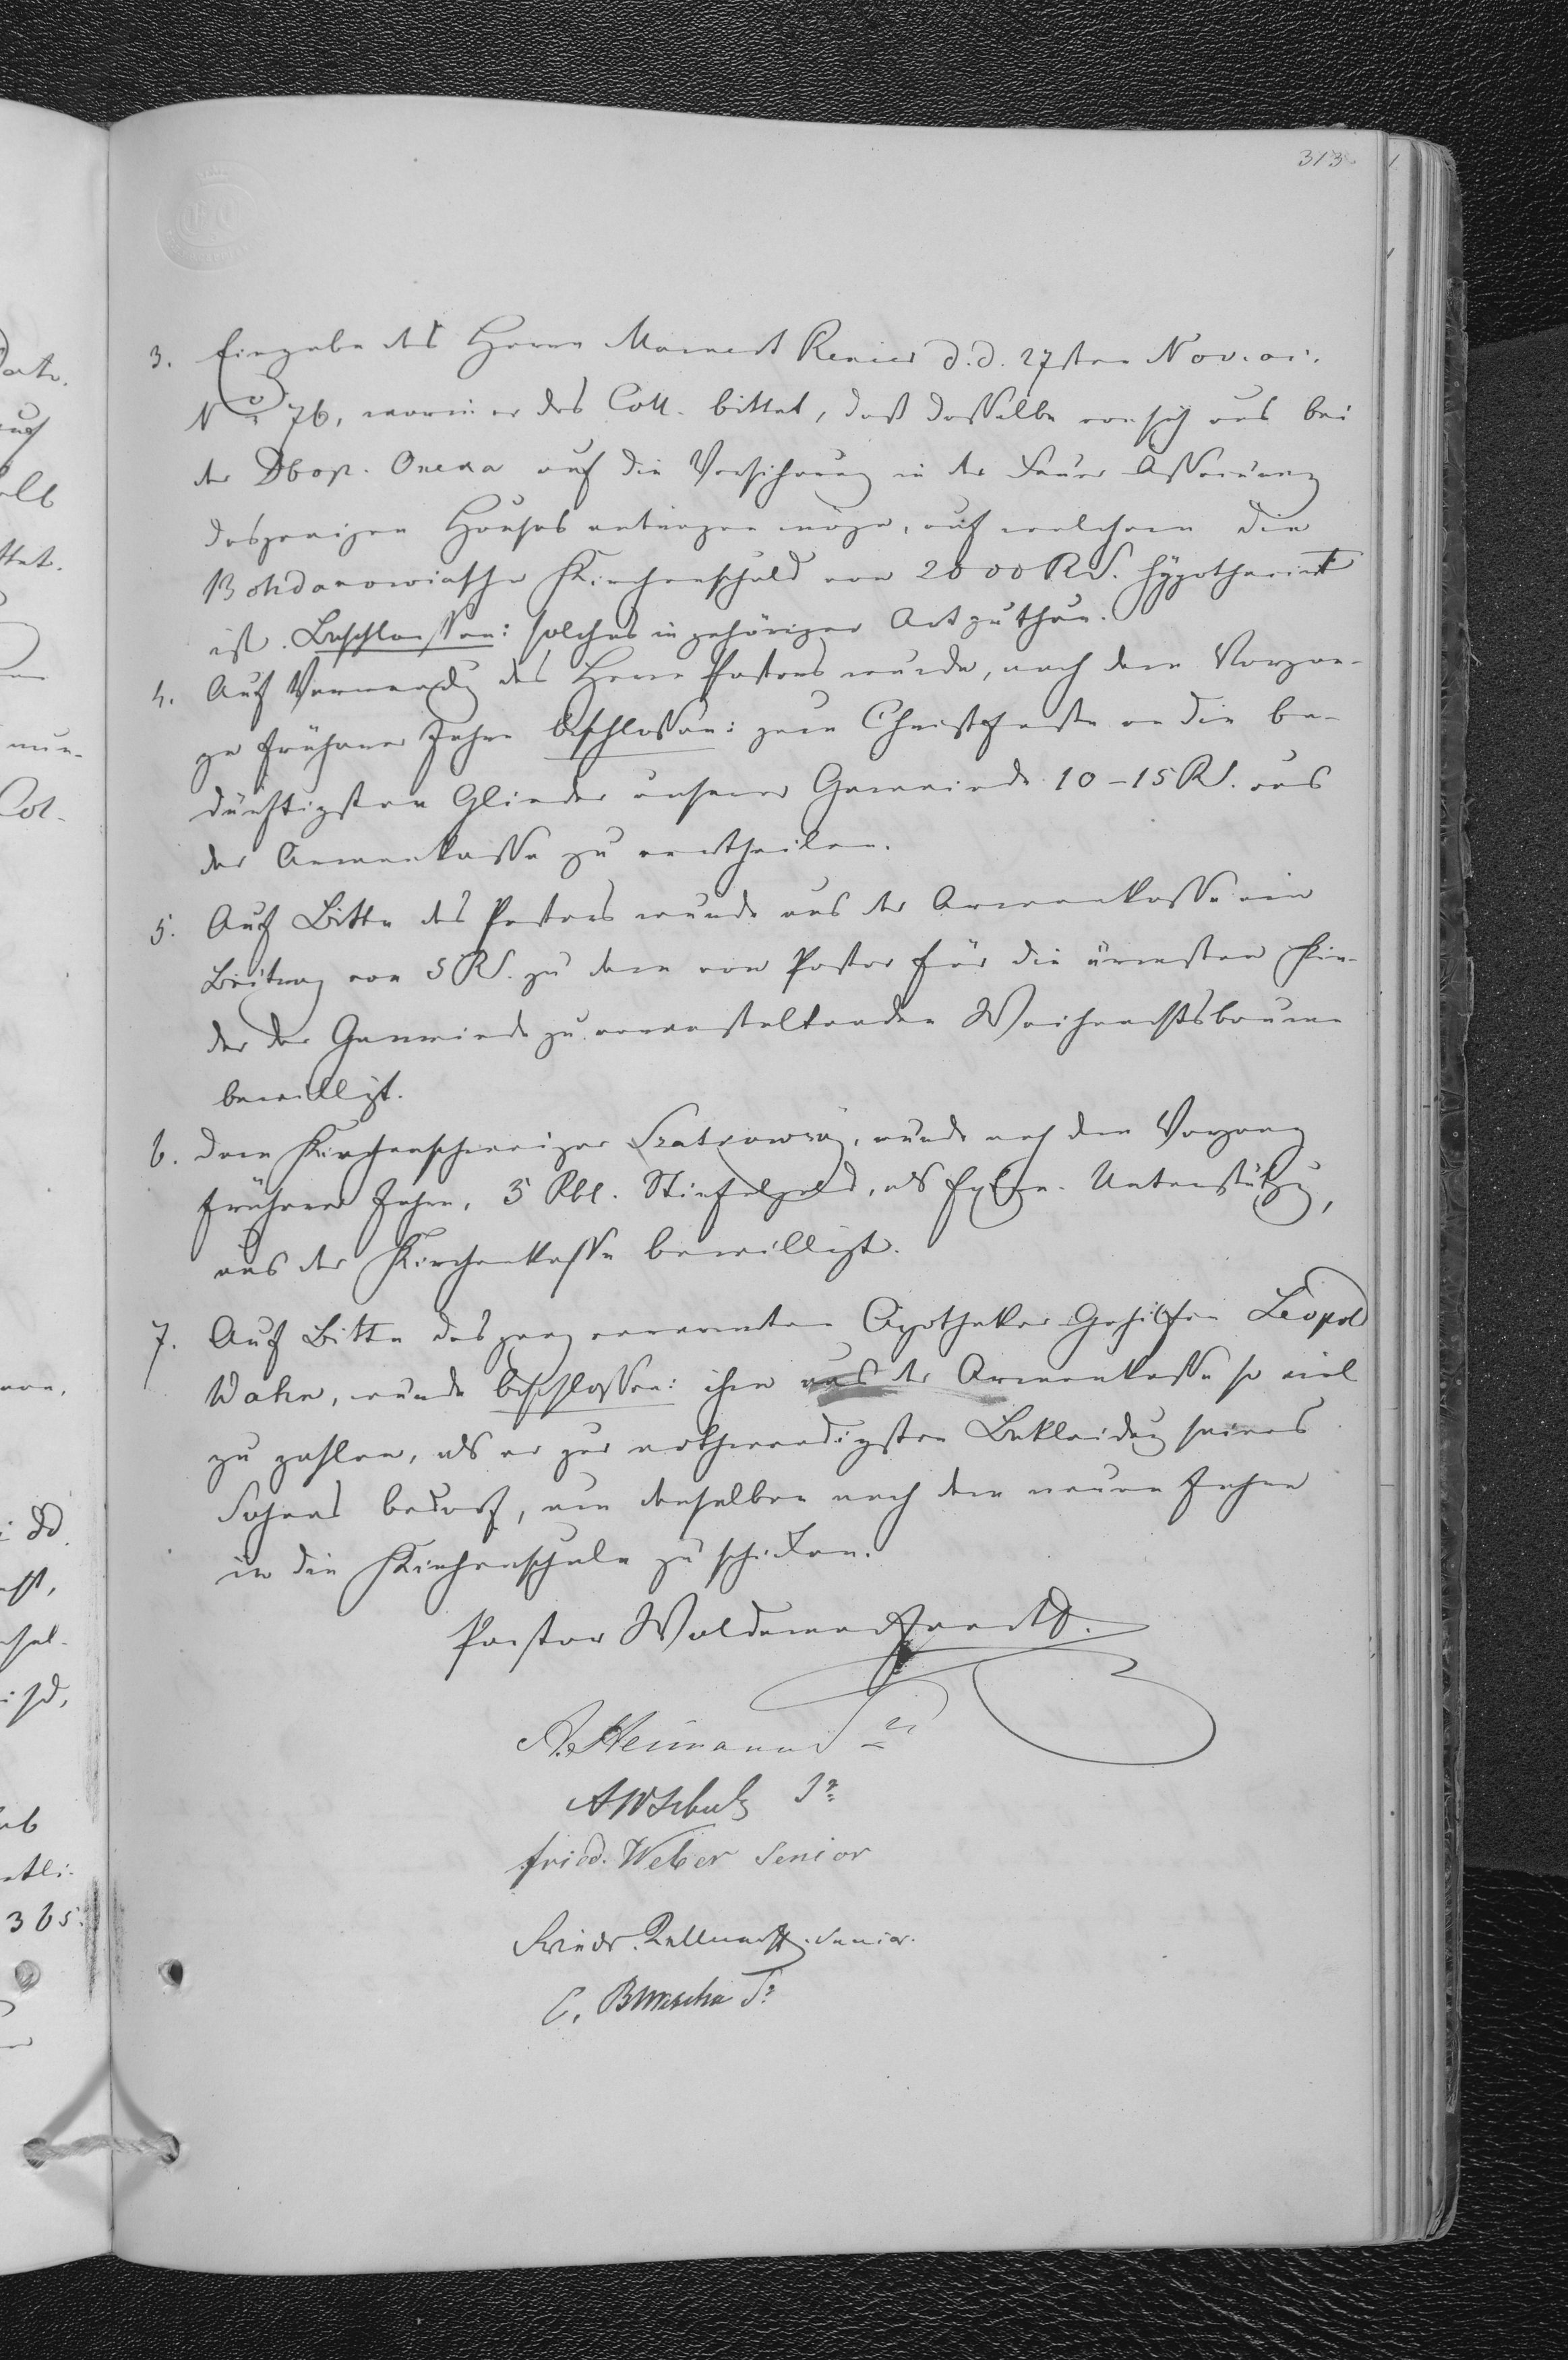 313.
3. Eingabe des Herrn Mamert Renier d. d. 27sten Nov. a. c.
No 76, worin er das Coll. bittet, daß dasselbe von sich aus bei
der Двор. Опека auf die Versicherung in der Feuer Assecuranz
desjenigen Hauses antragen möge, auf welchem die
Bohdanowiczsche Kirchenschuld von 2000 RS. hypothecirt
ist. Beschlossen: solches in gehöriger Art zu thun.
4. Auf Verwendg des Herrn Pastors wurde, nach dem Vorgan-
ge früherer Jahre beschlossen: zum Christfeste an die be-
dürftigsten Glieder unserer Gemeinde 10–15 RS. aus
der Armenkasse zu vertheilen.
5. Auf Bitte des Pastors wurde aus der Armenkasse ein
Beitrag von 5 RS. zu dem vom Pastor für die ärmsten Kin-
der der Gemeinde zu veranstaltenden Weihnachtsbaume
bewilligt.
6. Dem Kirchenschweizer wurde nach dem Vorgang
früherer Jahre, 5 Rbl. Stiefelgeld, als Unterstützg,
aus der Kirchenkasse bewilligt.
7. Auf Bitte des ganz verarmten Apotheker-Gehilfen Leopold
Wahn, wurde beschlossen: ihm aus der Armenkasse so viel
zu zahlen, als er zur nothwendigsten Bekleidung seines
Sohnes bedarf, um denselben nach dem neuen Jahre
in die Kirchenschule zu schicken.
Pastor Woldemar
A. Heimann Sr
A W Schulz Sr
Fried. Weber Senior
Friedr. Senior.
C. Sr